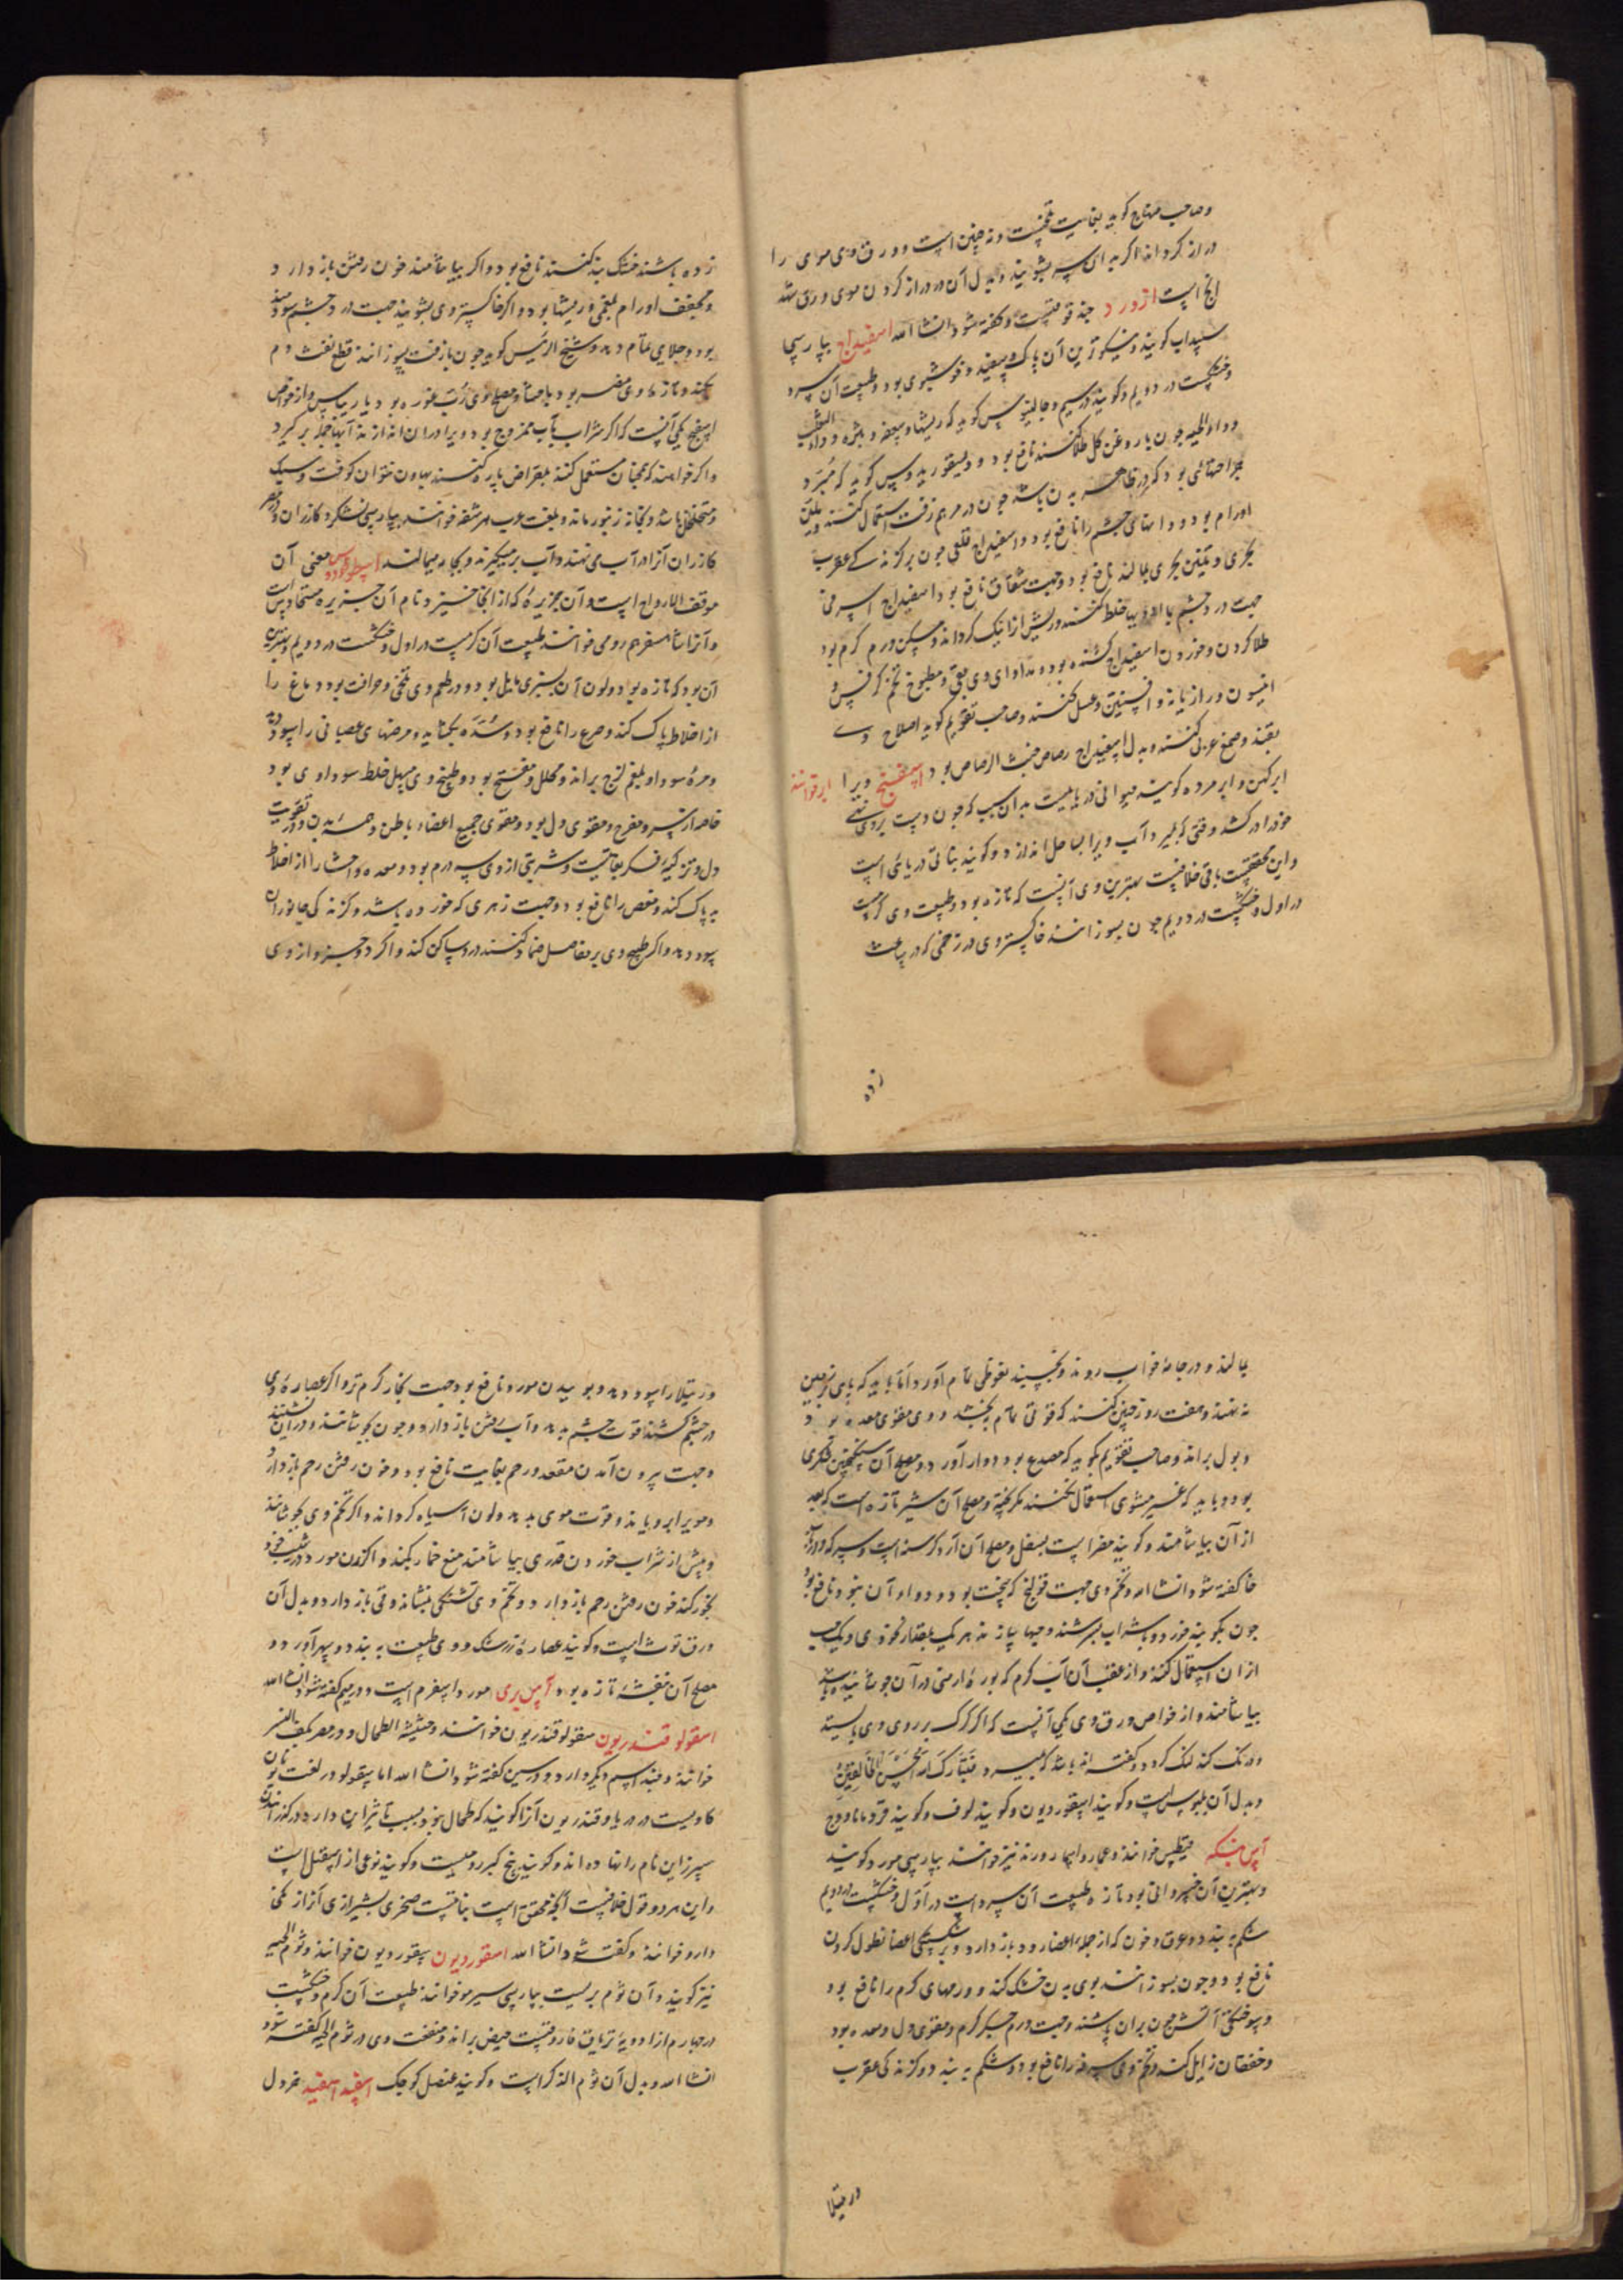 وصاحب منهاج کوید بغایت قبضست و نه چنین است و ورق وی موی را
دراز کرداند اکر بدان سر بشویند و بدل آن در دراز کردن موی ورق سدر
است ازورد حندقوقیست و کفته شود انشا الله اسفیداج بپارسی
سپیداب کویند و نیکوترین آن پاک و سفید و خوشبوی بود و طبیعت آن سرد
و خشکست در دویم و کویند در سیم و جالینوس کوید که ریشها و سعفه و بثره و داء الثعلب
و داء الحیه چون با روغن کل طلا کنند نافع بود و دیسقوریدوس کوید که مبرد
جراحتهایی بود که در ظاهر بدن باشد چون در مرهم زفت استعمال کنند و ملین
اورام بود و دانهای چشم را نافع بود و اسفیداج قلعی چون بر کزندکی عقرب
بحری و تنین بحری بمالند نافع بود و جهت شقاق نافع بود و اسفیداج اسربی
جهت درد چشم با ادویها خلط کنند و ریش را نیک کرداند و مسکن ورم کرم بود
طلا کردن و خوردن اسفیداج کشنده بود و مداوای وی بقی و مطبوخ تخم کرفس و
انیسون و رازیانه و افسنتین و عسل کنند و صاحب تقویم کوید اصلاح وی
بقند و صمغ عربی کنند و بدل اسفیداج رصاص خبث الرصاص بود اسفنج ویرا ابر خوانند
ابر کهن و ابر مرده کویند حیوانی دریاییست بدان سبب که چون دست بر وی نهی
خود را درکشد و وقتی که بمیرد آب ویرا بساحل اندازد و کویند نباتی دریائی است
و این محققست باقی خلافست بهترین وی آنست که تازه بود و طبیعت وی کرمست
در اول و خشکست در دویم چون بسوزانند خاکستر وی در زخمی که در ساعت
زده
زده باشند خشک بند کنند نافع بود و اکر بیاشامند خون رفتن باز دارد
و مجفف اورام بلغمی و ریشها بود و اکر خاکستر وی بشویند جهت درد چشم سودمند
بود و جلایی تمام دهد و شیخ الرئیس کوید چون با زفت بسوزانند قطع نفث دم
بکند و تازه وی مضر بود باحشا و مصلح وی رب غوره بود یا ریباس و از خواص
اسفنج یکی آنست که اکر شراب بآب ممزوج بود ویرا در آن اندازند آبها جمله برکیرد
و اکر خواهند که همچنان مستعمل کنند بمقراض پاره کنند بهاون نتوان کوفت و سبک
و متخلخل باشد و بخانه زنبور ماند و بلغت عرب هرشفه خوانند بپارسی نشکرد کازران و
کازران آنرا در آب می نهند و آب برمیکیرند و بجامه میمالند اسطوخودوس معنی آن
موقف الارواح است و آن جزیرۀ که از آنجا خیزد نام آن جزیره ستخادس است
و آنرا شاه سفرم رومی خوانند طبیعت آن کرمست در اول و خشکست در دویم و بهترین
آن بود که تازه بود و لون آن بسبزی مایل بود و در طعم وی تلخی و حرافت بود دماغ را
از اخلاط پاک کند و صرع را نافع بود و سده بکشاید و مرضهای عصبانی را سود دهد
و مرۀ سودا و بلغم لزج براند و محلل و مفتح بود و طبیخ وی مسهل خلط سوداوی بود
خاصه از سر و مفرح و مقوی دل بود و مقوی جمیع اعضاء باطن و همۀ بدن و در تقویت
دل و تزکیۀ فکر بغایتست و شربتی از وی سه درم بود و معده و احشا را از اخلاط
بد پاک کند و مغص را نافع بود و جهت زهری که خورده باشد و کزندکی جانوران
سود دهد و اکر طبیخ وی بر مفاصل ضماد کنند درد ساکن کند و اکر دو جزو از وی
بمالند و در جامۀ خواب روند و بخسپند نعوظی تمام آورد اما باید که پای بر زمین
نه نهند و هفت روز چنین کنند که قوتی تمام بخشد و وی مقوی معده بود
و بول براند و صاحب تقویم کوید که مصدع بود و دوار آورد و مصلح آن سکنجبین شکری
بود و باید که غیر مشوی استعمال نکنند مکر پخته و مصلح آن شیر تازه است که بعد
از آن بیاشامند و کویند مضر است بسفل و مصلح آن آرد کرسنه است و سرکه و در
خا کفته شود انشا الله و تخم وی جهت قولنج که سخت بود و دواء آن نبود نافع بود
چون بکوبند خورد و بشراب بسرشند و حبها سازند هر یک بمقدار نخودی و یک حب
از آن استعمال کنند و از عقب آن آب کرم که بورۀ ارمنی در آن جوشانیده باشند
بیاشامند و از خواص ورق وی یکی آنست که اکر کرک بر روی وی بایستد
و درنک کند لنک کردد و کفته اند باشد که بمیرد فتبارک الله احسن الخالقین
و بدل آن بلبوس است و کویند اسقوردیون و کویند لوف و کویند قردمانا و وج
آس مینسکه خوانند و عمار و اسمار و رند نیز خوانند بپارسی مورد کویند
و بهترین آن خسروانی بود تازه طبیعت آن سرد است در اول و خشکست در دویم
شکم به بندد و عرق و خون که از جمله اعضا رود باز دارد و بر شکستکی اعضا نطول کردن
نافع بود و چون بسوزانند بوی بدن خشک کند و ورمهای کرم را نافع بود
و سوختکی آتش چون بر آن پاشند و جهت ورم جکر کرم و مقوی دل و معده بود
و خفقان زایل کند و تخم وی سرفه را نافع بود و شکم به بندد و کزندکی عقرب
و رتیلا
و رتیلا را سود دهد و بوییدن مورد نافع بود جهت بخار کرم تر و اکر عصارۀ وی
در چشم کشند قوت چشم بدهد و آب رفتن باز دارد و چون بجوشانند و در آن نشینند
و جهت بیرون آمدن مقعد و رحم بغایت نافع بود و خون رفتن رحم باز دارد
و موی را برویاند و قوت موی بدهد و لون آن سیاه کرداند و اکر تخم وی بجوشانند
و پیش از شراب خوردن قدری بیاشامند منع خمار بکند و اکر زن مورد در شیب خود
بخور کند خون رفتن رحم باز دارد و تخم وی تشنکی بنشاند و قی باز دارد و بدل آن
ورق توث است و کویند عصارۀ زرشک و وی طبیعت به بندد و سهر آورد و
مصلح آن بنفشۀ تازه بود آس بری مورد اسفرم است و در میم کفته شود انشا الله
اسقولوقندریون سقولوقندریون خوانند و حشیشة الطحال و در مصر بکف النسر
خوانند و چند اسم دیکر دارد و در سین کفته شود انشا الله اما سقولو در لغت یونان
کاویست در دریا و قندریون آنرا کویند که طحال نبود و بسبب تاثیر این دارو در کدازانیدن
سپرز این نام را نهاده اند و کویند بیخ کبر رومیست و کویند نوعی از اسقیل است
و این هر دو قول خلافست آنچه محقق است نباتیست صخری بشیرازی آنرا زنکی
دارو خوانند و کفته شود انشا الله اسقوردیون سقوردیون خوانند و ثوم الحیه
نیز کویند و آن ثوم بریست بپارسی سیر مو خوانند طبیعت آن کرم و خشکست
در چهارم از ادویۀ تریاق فاروقست حیض براند و منفعت وی در ثوم الحیه کفته شود
انشا الله و بدل آن ثوم الذکر است و کویند عنصل کوچک اسفید اسفید خردل